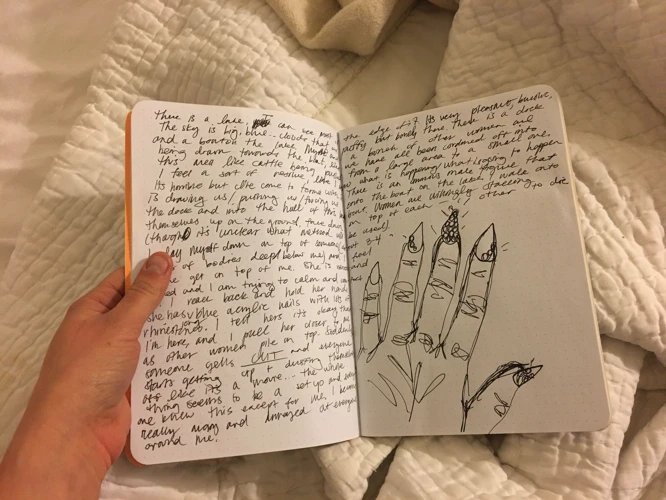 there is a lake. I can see most
The sky is big, blue.. clover that
and a boat on the lake. Myself and
being drawn towards the boat, like
this area like cattle being
I feel a sort of passive, like I
its horrible but I've come to terms with
is drawing us / pushing us / forcing us
the dock and into the hull of this
themselves up on the ground, true
(though it's unclear what method will
I lay myself down on top of someone
of bodies deep below me) and
get on top of me. She is
and I am trying to calm and
I reach back and hold her hand
she has long blue acrylic nails with lots of
rhinestones. I tell hers it's okay that
I'm here, and I pull her closer to me
as other women pile on top. Suddenly
someone yells CUT and everyone
starts getting up + dusting themselves
like it's a movie.. the whole
thing seems to be a set up and every
one knew this except for me. I become
really angry and amazed at everyone
around me.
the edge of it. Its very pleasant, bucolic,
puffy but lovely there. There is a dock
a bunch of other women and
we have all been cordoned off into
from a large area to a small one.
what is happening, what is going to happen
There is an ominous male figure that
onto the boat on the lake, I walk onto
our women are willingly stacking
on top of each other to die
be used).
3-4
feel
and